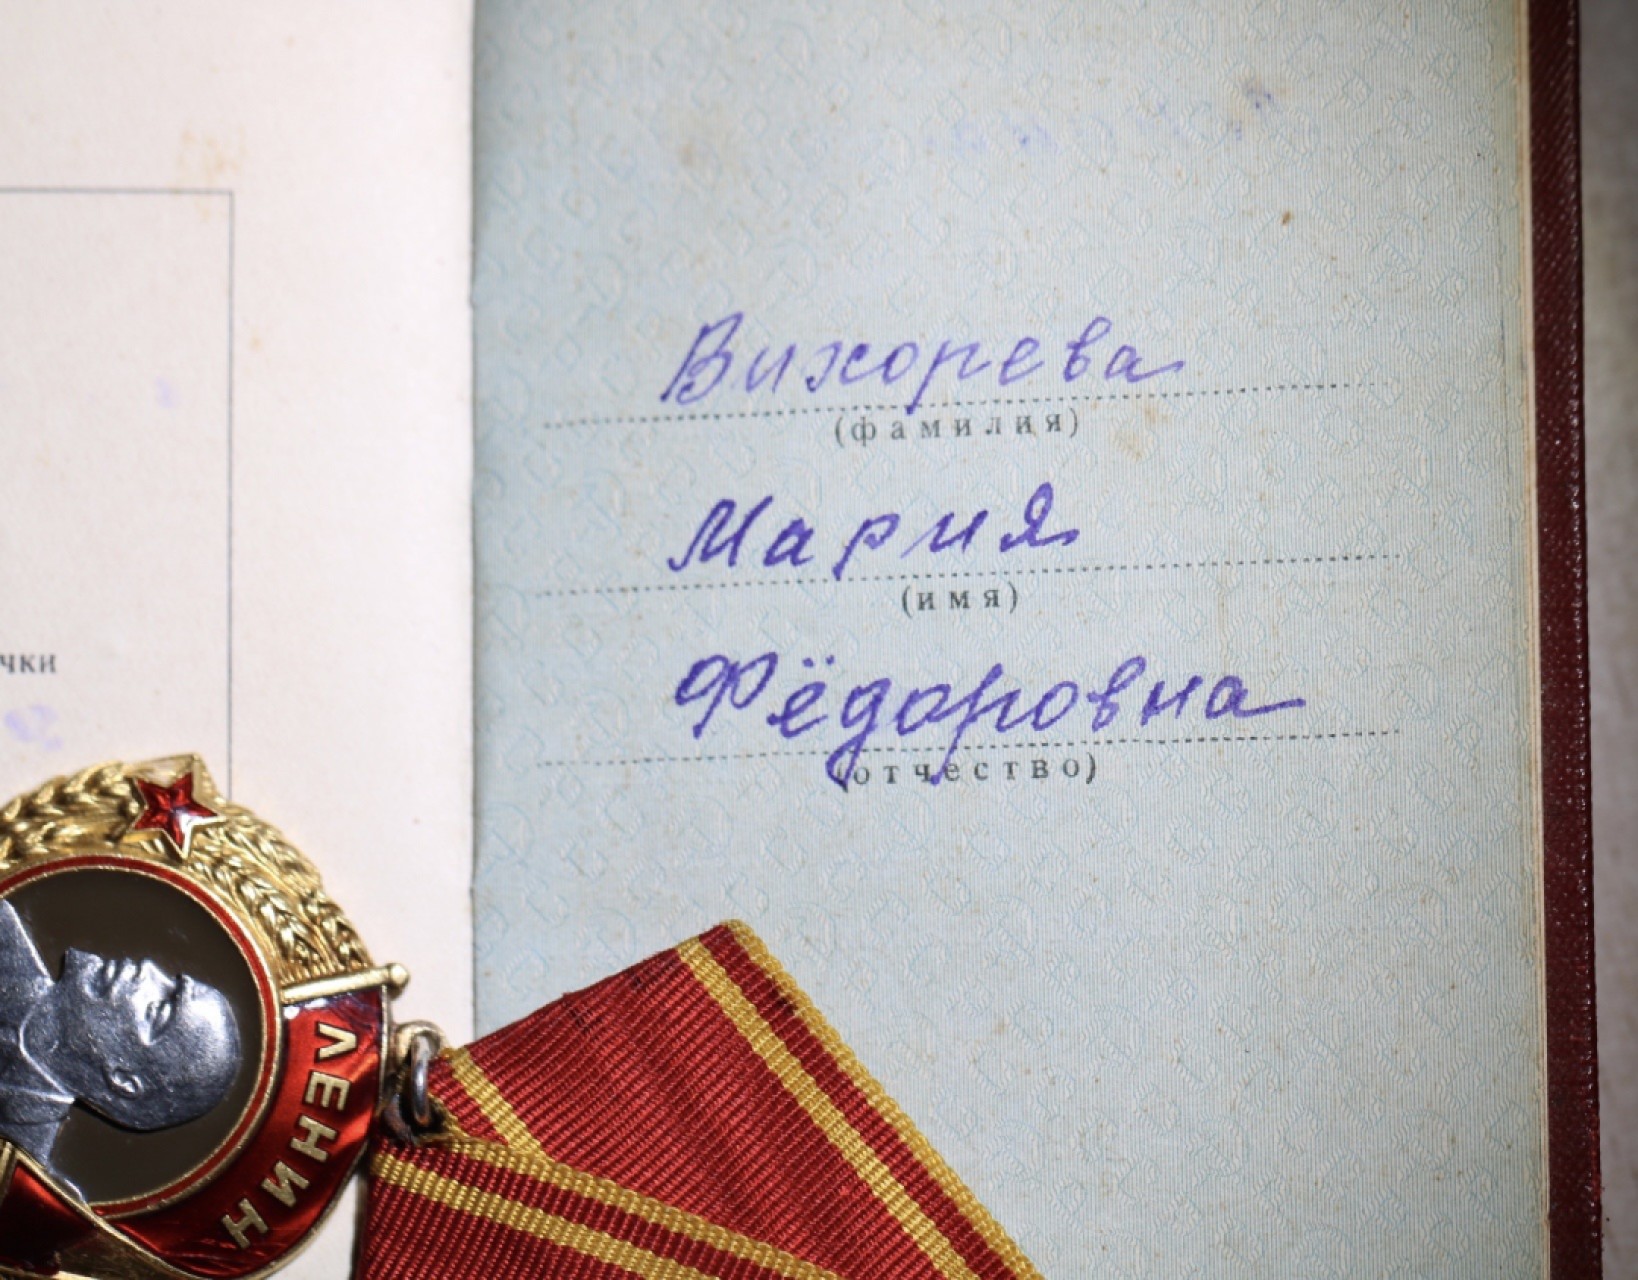 Вихорева
(фамилия)
Мария
(имя)
Фёдоровна
(отчество)
чки
ЛЕНИН